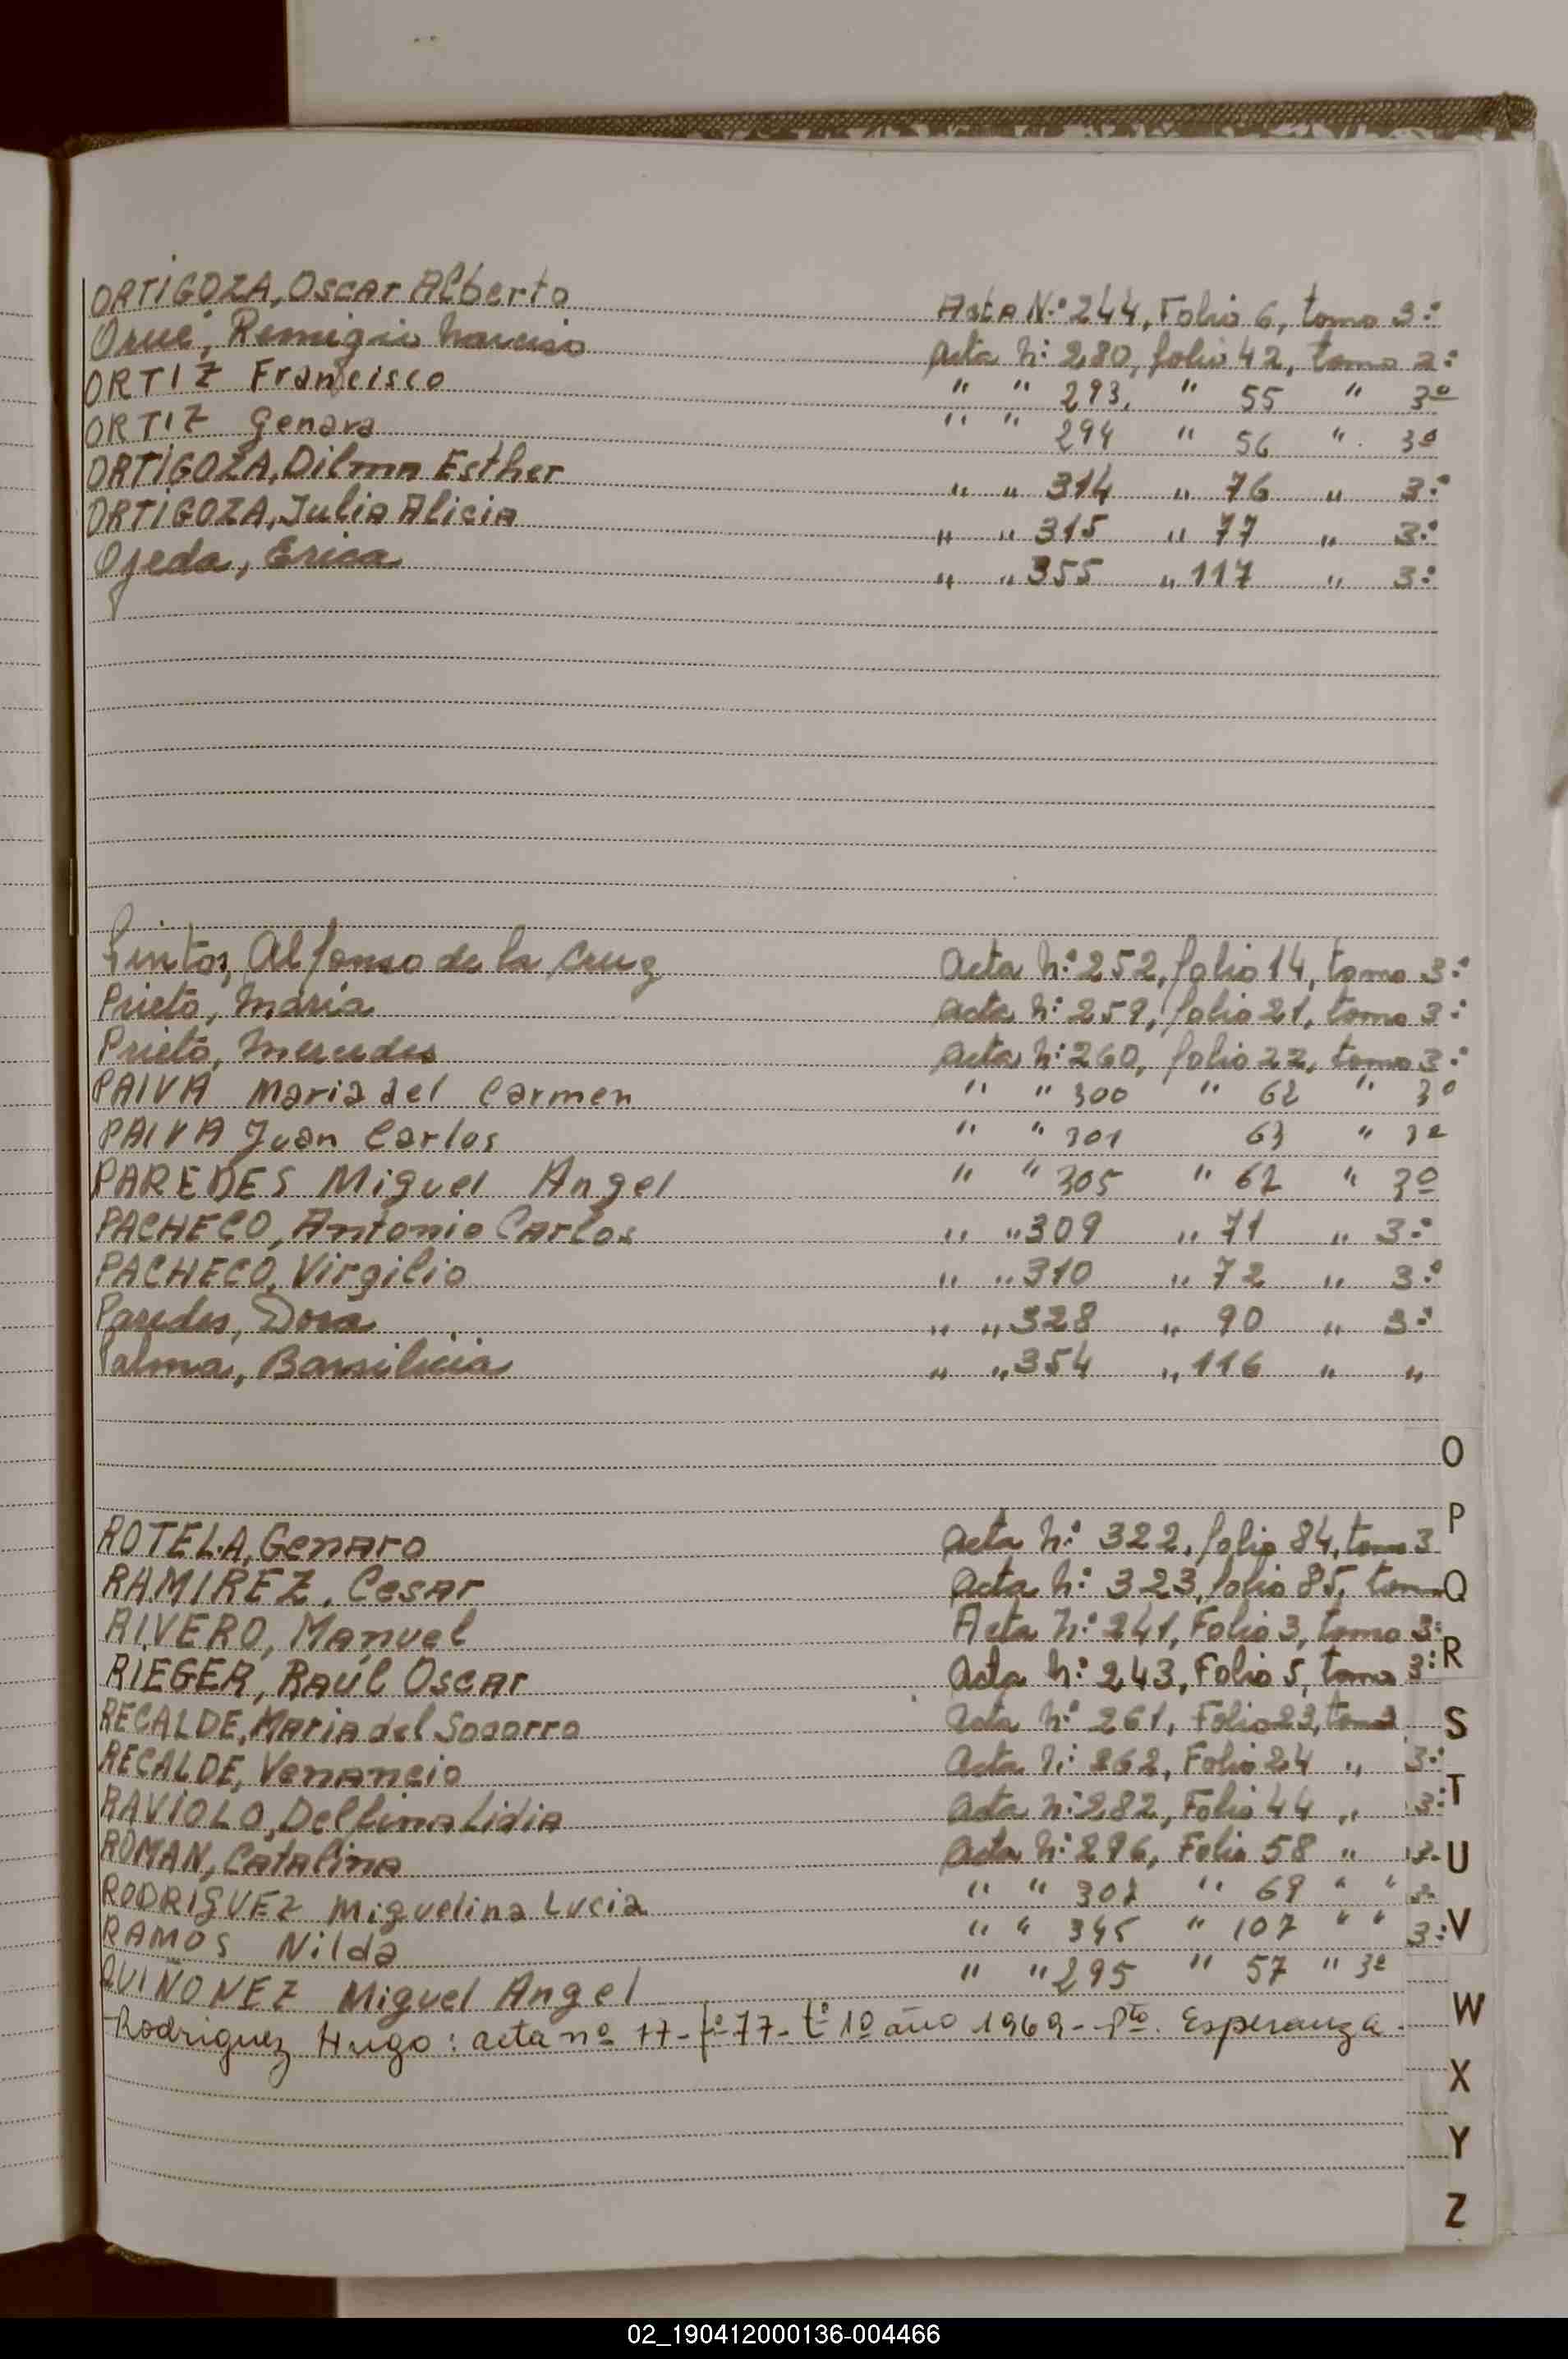 ORTIGOZA, Oscar Alberto Acta N.º 244, Folio 6, tomo 3º
Orué, Remigio Narciso Acta n.º 280, folio 42, tomo 3º
ORTIZ Francisco " " 293, " 55 " 3º
ORTIZ Genara " " 294 " 56 " 3º
ORTIGOZA, Dilma Esther " " 314 " 76 " 3º
ORTIGOZA, Julia Alicia " " 315 " 77 " 3º
Ojeda, Erica " " 355 " 117 " 3º
Pintos, Alfonso de la Cruz Acta n.º 252, folio 14, tomo 3º
Prieto, María Acta n.º 259, folio 21, tomo 3º
Prieto, Mercedes Acta n.º 260, folio 22, tomo 3º
PAIVA Maria del Carmen " " 300 " 62 " 3º
PAIVA Juan Carlos " " 301 63 " 3º
PAREDES Miguel Angel " " 305 " 67 " 3º
PACHECO, Antonio Carlos " " 309 " 71 " 3º
PACHECO, Virgilio " " 310 " 72 " 3º
Paredes, Dora " " 328 " 90 " 3º
Palma, Barsilicia " " 354 " 116 " "
O
P
ROTELA, Genaro Acta n.º 322, folio 84, tomo 3
RAMIREZ, Cesar Acta n.º 323, folio 85, tomo
Q
RIVERO, Manuel Acta n.º 241, Folio 3, tomo 3º
RIEGER, Raúl Oscar Acta n.º 243, Folio 5, tomo 3º
R
RECALDE, Maria del Socorro Acta n.º 261, Folio 23, tomo 3
S
RECALDE, Venancio Acta n.º 262, Folio 24 " 3º
RAVIOLO, Delfina Lidia Acta n.º 282, Folio 44 " 3º
T
ROMAN, Catalina Acta n.º 296, Folio 58 " 3º
U
RODRIGUEZ Miguelina Lucia " " 307 " 69 " " 3º
RAMOS Nilda " " 345 " 107 " " 3º
V
QUIÑONEZ Miguel Angel " " 295 " 57 " 3º
Rodriguez Hugo: acta nº 17- fº 77- tº 1º año 1969- Pto. Esperanza.
W
X
Y
Z
02_190412000136-004466